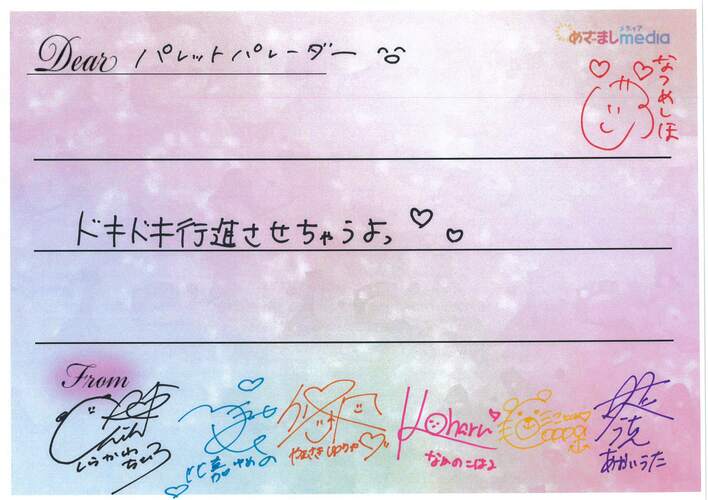 Dear パレットパレーダー
メディア
めざましmedia
なつめしほ
ドキドキ行進させちゃうよっ
From
しらかわちひろ
比嘉ゆめの
やまさきゆりや
Koharu
なかのこはる
うちえ
あかいうた